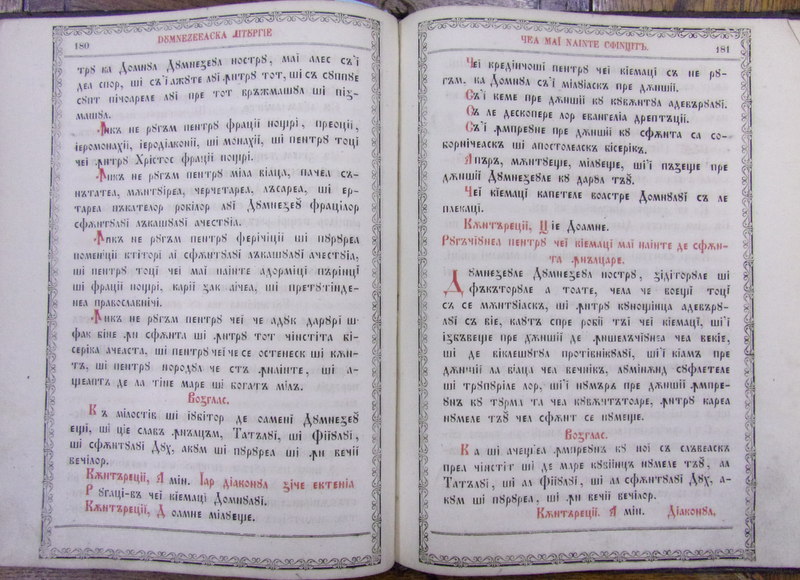 180
DꙋMNEZEEACKA ЛITꙋPГIE
трꙋ ка Домнꙋл Дꙋмнезеꙋл нострꙋ, маĭ алес съ'ĭ
деа спор, ші съ'ĭ ажꙋте лꙋĭ ꙟнтрꙋ тот, ші съ сꙋппꙋе
сꙋпт пічоареле лꙋĭ пре тот връжмашꙋл ші піз-
машꙋл.
Ꙟнкъ не рꙋгъм пентрꙋ фрації ношрі, преоції,
іеромонахії, іеродіаконії, ші монахії, ші пентрꙋ тоці
чеі ꙟнтрꙋ Хрістос фрації ношрі.
Ꙟнкъ не рꙋгъм пентрꙋ міла віаца, пачеа съ-
нътатеа, мѫнтꙋіреа, черчетареа, лъсареа, ші ер-
тареа пъкателор робілор лꙋĭ Дꙋмнезеꙋ фрацілор
сфѫнтꙋлꙋĭ лъкашꙋлꙋĭ ачестꙋіа.
Ꙟнкъ не рꙋгъм пентрꙋ ферічіції ші пꙋрꙋреа
поменіції ктіторі аі сфѫнтꙋлꙋĭ лъкашꙋлꙋĭ ачестꙋіа,
ші пентрꙋ тоці чеі маĭ наінте адорміці пърінці
ші фрації ношрі, карії зак аічеа, ші претꙋтінде-
неа православнічі.
Ꙟнкъ не рꙋгъм пентрꙋ чеі че адꙋк дарꙋрі ш
фак біне ꙟн сфѫнта ші ꙟнтрꙋ тот чінстіта бі-
серіка ачеаста, ші пентрꙋ чеі че се остенеск ші кѫн-
тъ, ші пентрꙋ породꙋл че стъ ꙟнаінте, ші а-
шеаптъ де ла тіне маре ші богатъ мілъ.
Возглас.
Къ мілостів ші іꙋбітор де оамені Дꙋмнезеꙋ
ещі, ші ціе славъ ꙟнълцъм, Татълꙋĭ, ші Фіĭꙋлꙋĭ,
ші сфѫнтꙋлꙋĭ Дꙋх, акꙋм ші пꙋрꙋреа ші ꙟн вечії
вечілор.
Кѫнтъреції, Амін. Іар діаконꙋл зіче ектеніа
Рꙋгаці-въ чеі кіемаці Домнꙋлꙋĭ.
Кѫнтъреції, Доамне мілꙋеще.
ЧЕА МАĬ NAINTE СФІNЦІТЪ.
181
Чеі кредінчоші пентрꙋ чеі кіемаці съ не рꙋ-
гъм. ка Домнꙋл съ'ĭ мілꙋіаскъ пре дѫншії.
Съ'ĭ кеме пре дѫншії кꙋ кꙋвѫнтꙋл адевърꙋлꙋĭ.
Съ ле дескопере лор евангеліа дрептъції.
Съ'ĭ ꙟмпреꙋне пре дѫншії кꙋ сфѫнта са со-
борнічеаскъ ші апостолеаскъ бісерікъ.
Апъръ, мѫнтꙋеще, мілꙋеще, ші'ĭ пъзеще пре
дѫншії Дꙋмнезеꙋле кꙋ дарꙋл тъꙋ.
Чеі кіемаці капетеле воастре Домнꙋлꙋĭ съ ле
плекаці.
Кѫнтъреції, Ціе Доамне.
Рꙋгъчіꙋнеа пентрꙋ чеі кіемаці маĭ наінте де сфѫн-
та ꙟнълцаре.
Дꙋмнезеꙋле Дꙋмнезеꙋл нострꙋ, зідіторꙋле ші
фъкъторꙋле а тоате, чела че воещі тоці
съ се мѫнтꙋіаскъ, ші ꙟнтрꙋ кꙋнощінца адевърꙋ-
лꙋĭ съ віе, каꙋтъ спре робії тъі чеі кіемаці, ші'ĭ
ізбъвеще пре дѫншії де ꙟншелъчіꙋнеа чеа векіе,
ші де віклешꙋгꙋл протівнікꙋлꙋĭ, ші'ĭ кіамъ пре
дѫншії ла віаца чеа вечнікъ, лꙋмінѫнд сꙋфлетеле
ші трꙋпꙋріле лор, ші'ĭ нꙋмъръ пре дѫншії ꙟмпре-
ꙋнъ кꙋ тꙋрма та чеа кꙋвѫнтътоаре, ꙟнтрꙋ кареа
нꙋмеле тъꙋ чел сфѫнт се нꙋмеще.
Возглас.
Ка ші ачещіеа ꙟмпреꙋнъ кꙋ ноі съ слъвеаскъ
преа чінстіт ші де маре кꙋвіінцъ нꙋмеле тъꙋ, ал
Татълꙋĭ, ші ал Фіĭꙋлꙋĭ, ші ал сфѫнтꙋлꙋĭ Дꙋх, а-
кꙋм ші пꙋрꙋреа, ші ꙟн вечії вечілор.
Кѫнтъреції. Амін. Діаконꙋл.